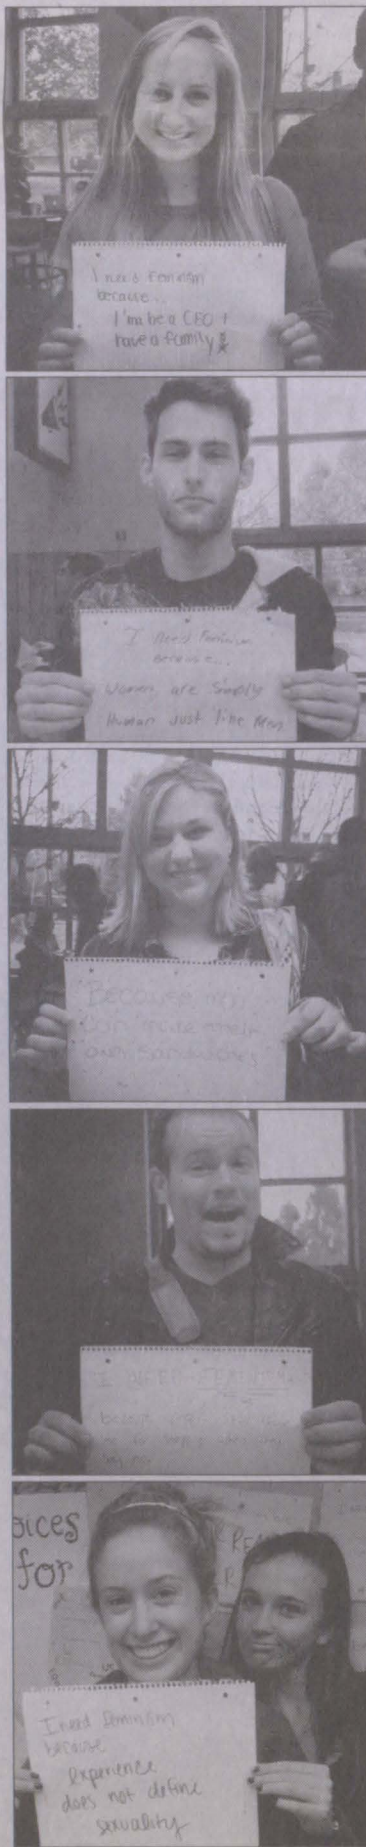 I need feminism
because...
I'ma be a CEO &
have a family!
I Need Feminism
Because...
Women are Simply
Human Just like Men
Because men
can make their
own sandwiches
I NEED FEMINISM
because
say no
oices
for
I need feminism
because
experience
does not define
sexuality